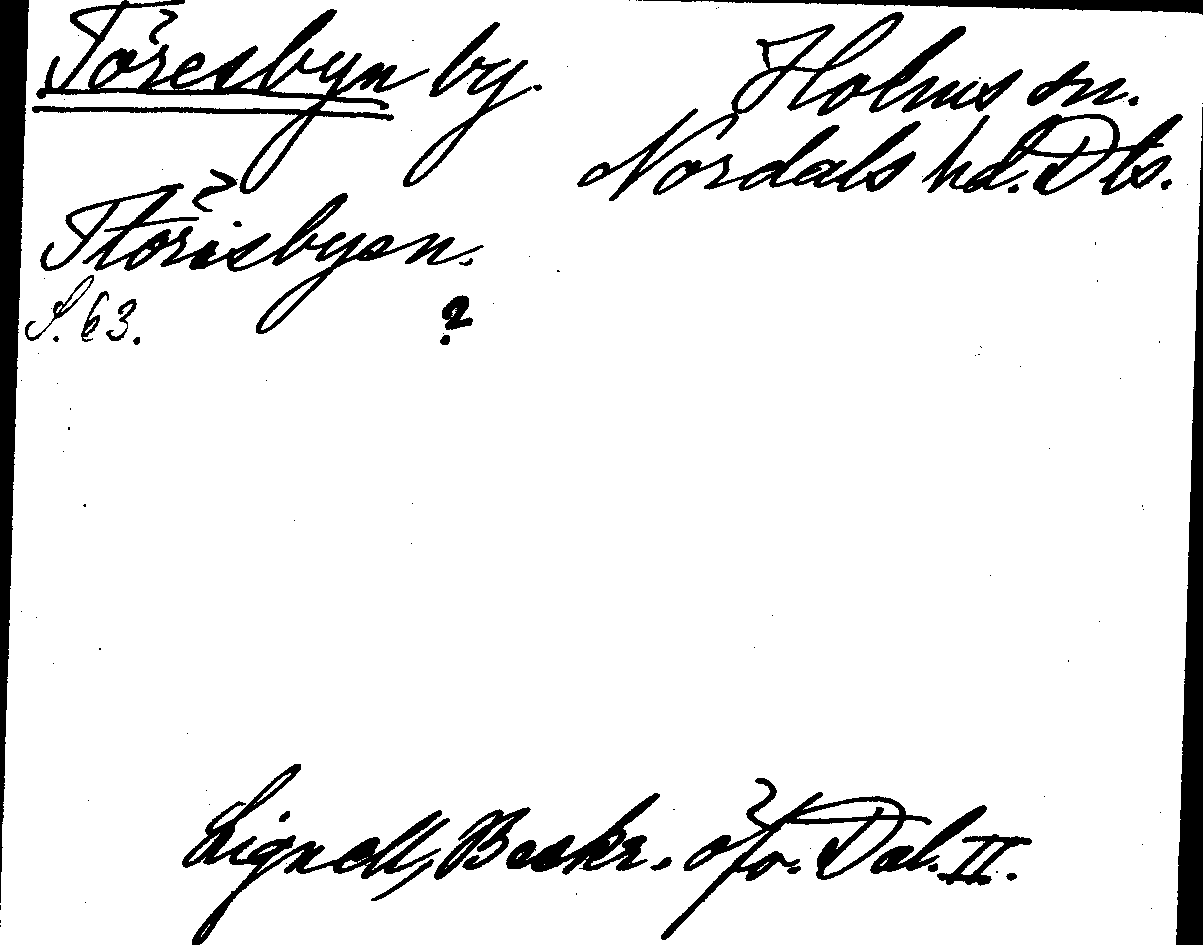 Töresbyn by.
Holms sn.
Nordals hd. Dls.
Thörisbyen.
S. 63. ?
Lignell, Beskr. öfv. Dal. II.